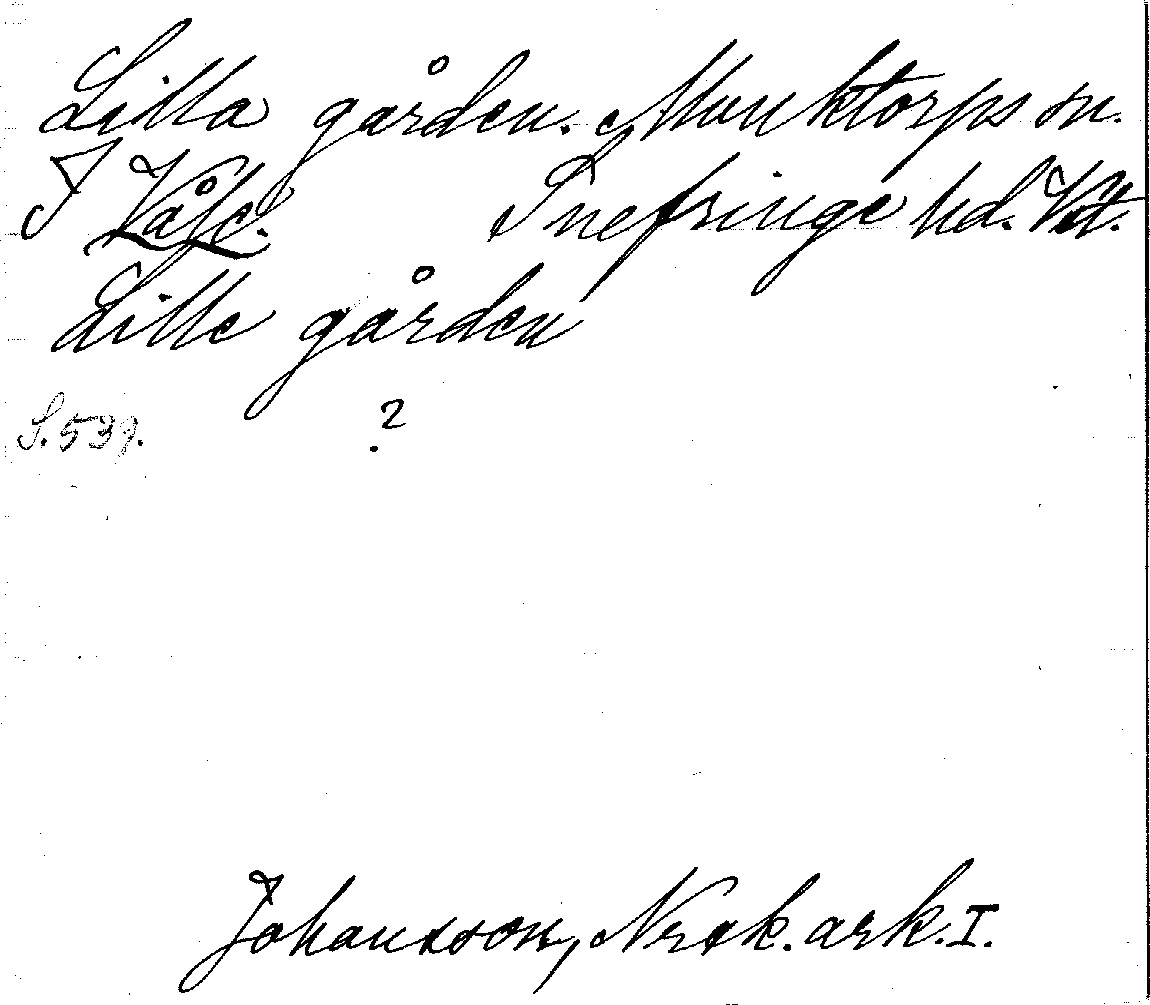 Lilla gården. Munktorps sn.
I Våle. Snefringe hd. Vstm.
Lille gården
S. 539. ?
Johansson, Norsk. ark. I.